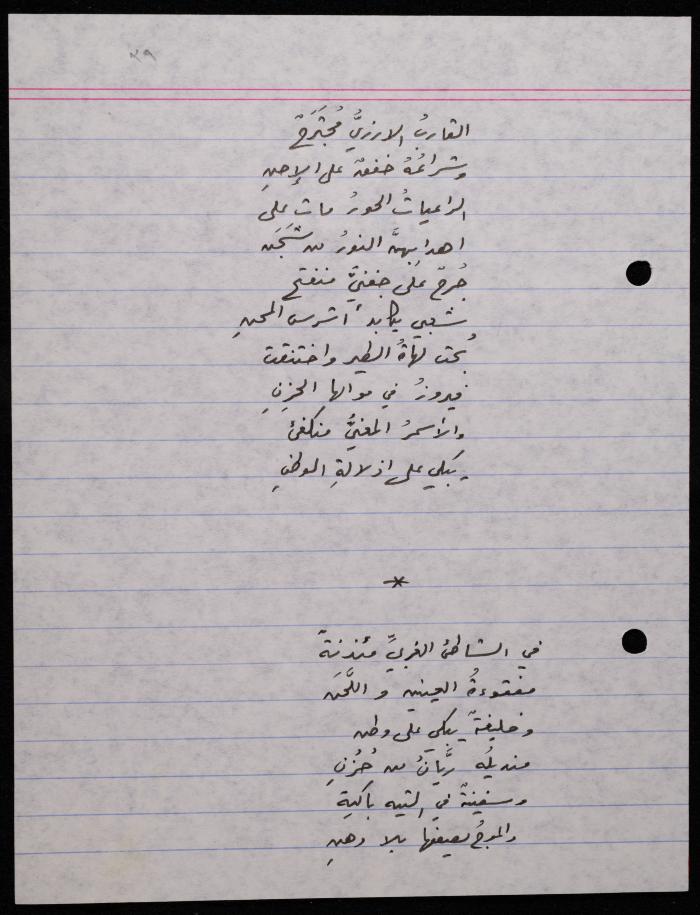 ٣٩
القاربُ الارزيُّ مُجتَرَحٌ
وشراعُهُ خفقةٌ على الإحنِ
الراعياتُ الحورُ مات على
اهدابهنَّ النورُ من شَجَن
جُرحٌ على جفنيَّ منفتح
شعبي يكابد أشرس المحنِ
بُحّت لهاةُ الطير واختنقت
فيروزُ في موالها الحزنِ
والأسمرُ المغنيُّ منكفئ
يبكي على اذلالةِ الوطنِ
*
في الشاطئ الغربيِّ مئذنةٌ
مفقوءةُ العينين و اللَّحَن
وخليفةٌ يبكي على وطن
منديلُه ريَّانُ من حُزُنِ
وسفينةٌ في التيه باكيةِ
والموجُ بلا وهنِ